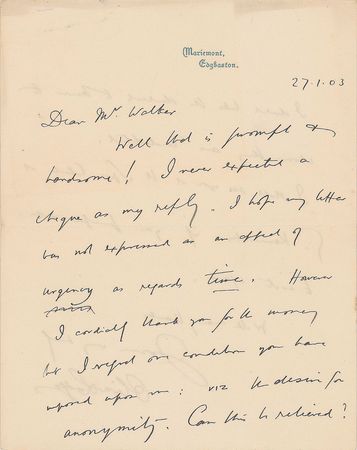 Mariemont,
Edgbaston.
27.1.03
Dear Mr. Walker
Well that is prompt &
handsome! I never expected a
cheque as my reply. I hope my letter
was not expressed as an appeal of
urgency as regards time. However
I cordially thank you for the money
but I regret one condition you have
imposed upon me: viz the desire for
anonymity. Can this be relieved?